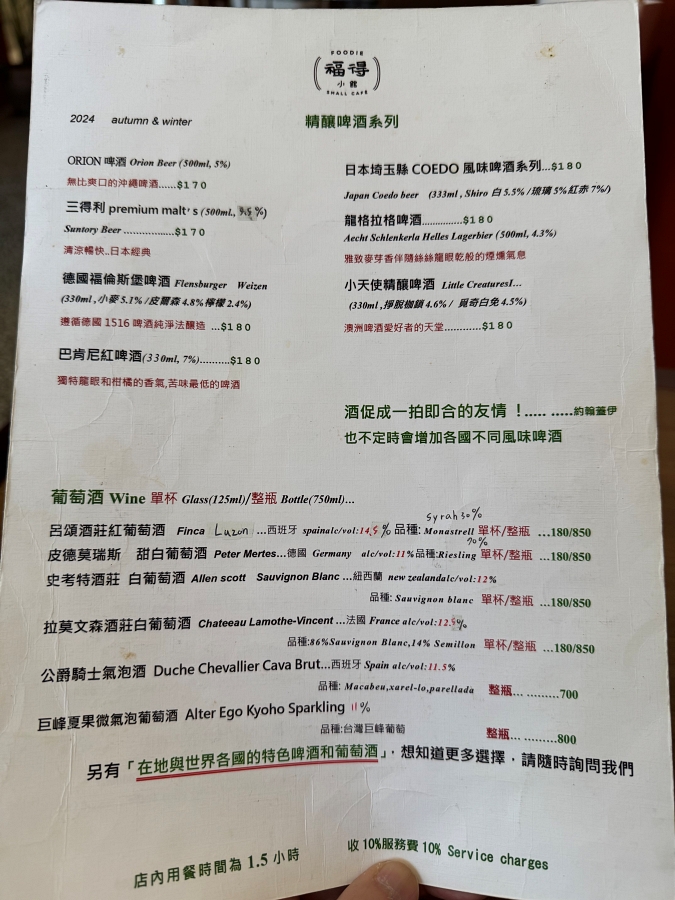 FOODIE
福得
小館
SMALL CAFE
2024 autumn & winter
精釀啤酒系列
ORION 啤酒 Orion Beer (500ml, 5%)
無比爽口的沖繩啤酒......$170
三得利 premium malt's (500ml, 5.5%)
Suntory Beer ..................$170
清涼暢快..日本經典
德國福倫斯堡啤酒 Flensburger Weizen
(330ml ,小麥 5.1% /皮爾森 4.8%檸檬 2.4%)
遵循德國 1516 啤酒純淨法釀造 ...$180
巴肯尼紅啤酒(330ml, 7%)..........$180
獨特龍眼和柑橘的香氣,苦味最低的啤酒
日本埼玉縣 COEDO 風味啤酒系列...$180
Japan Coedo beer (333ml , Shiro 白 5.5% /琉璃 5%紅赤 7%/)
龍格拉格啤酒...............$180
Aecht Schlenkerla Helles Lagerbier (500ml, 4.3%)
雅致麥芽香伴隨絲絲龍眼乾般的煙燻氣息
小天使精釀啤酒 Little CreaturesI...
(330ml ,掙脫枷鎖 4.6% / 覓奇白兔 4.5%)
澳洲啤酒愛好者的天堂............$180
酒促成一拍即合的友情！..... .....約翰蓋伊
也不定時會增加各國不同風味啤酒
葡萄酒 Wine 單杯 Glass(125ml)/整瓶 Bottle(750ml)...
syrah30%
呂頌酒莊紅葡萄酒 Finca Luzon ...西班牙 spainalc/vol:14.5% 品種: Monastrell 單杯/整瓶 ...180/850
70%
皮德莫瑞斯 甜白葡萄酒 Peter Mertes...德國 Germany alc/vol:11%品種:Riesling 單杯/整瓶 ...180/850
史考特酒莊 白葡萄酒 Allen scott Sauvignon Blanc ...紐西蘭 new zealandalc/vol:12%
品種: Sauvignon blanc 單杯/整瓶 ...180/850
拉莫文森酒莊白葡萄酒 Chateeau Lamothe-Vincent ...法國 France alc/vol:12.5%
品種:86%Sauvignon Blanc,14% Semillon 單杯/整瓶 ...180/850
公爵騎士氣泡酒 Duche Chevallier Cava Brut...西班牙 Spain alc/vol:11.5%
品種: Macabeu,xarel-lo,parellada 整瓶... .........700
巨峰戛果微氣泡葡萄酒 Alter Ego Kyoho Sparkling 11%
品種:台灣巨峰葡萄
整瓶... .........800
另有「在地與世界各國的特色啤酒和葡萄酒」，想知道更多選擇，請隨時詢問我們
店內用餐時間為 1.5 小時
收 10%服務費 10% Service charges